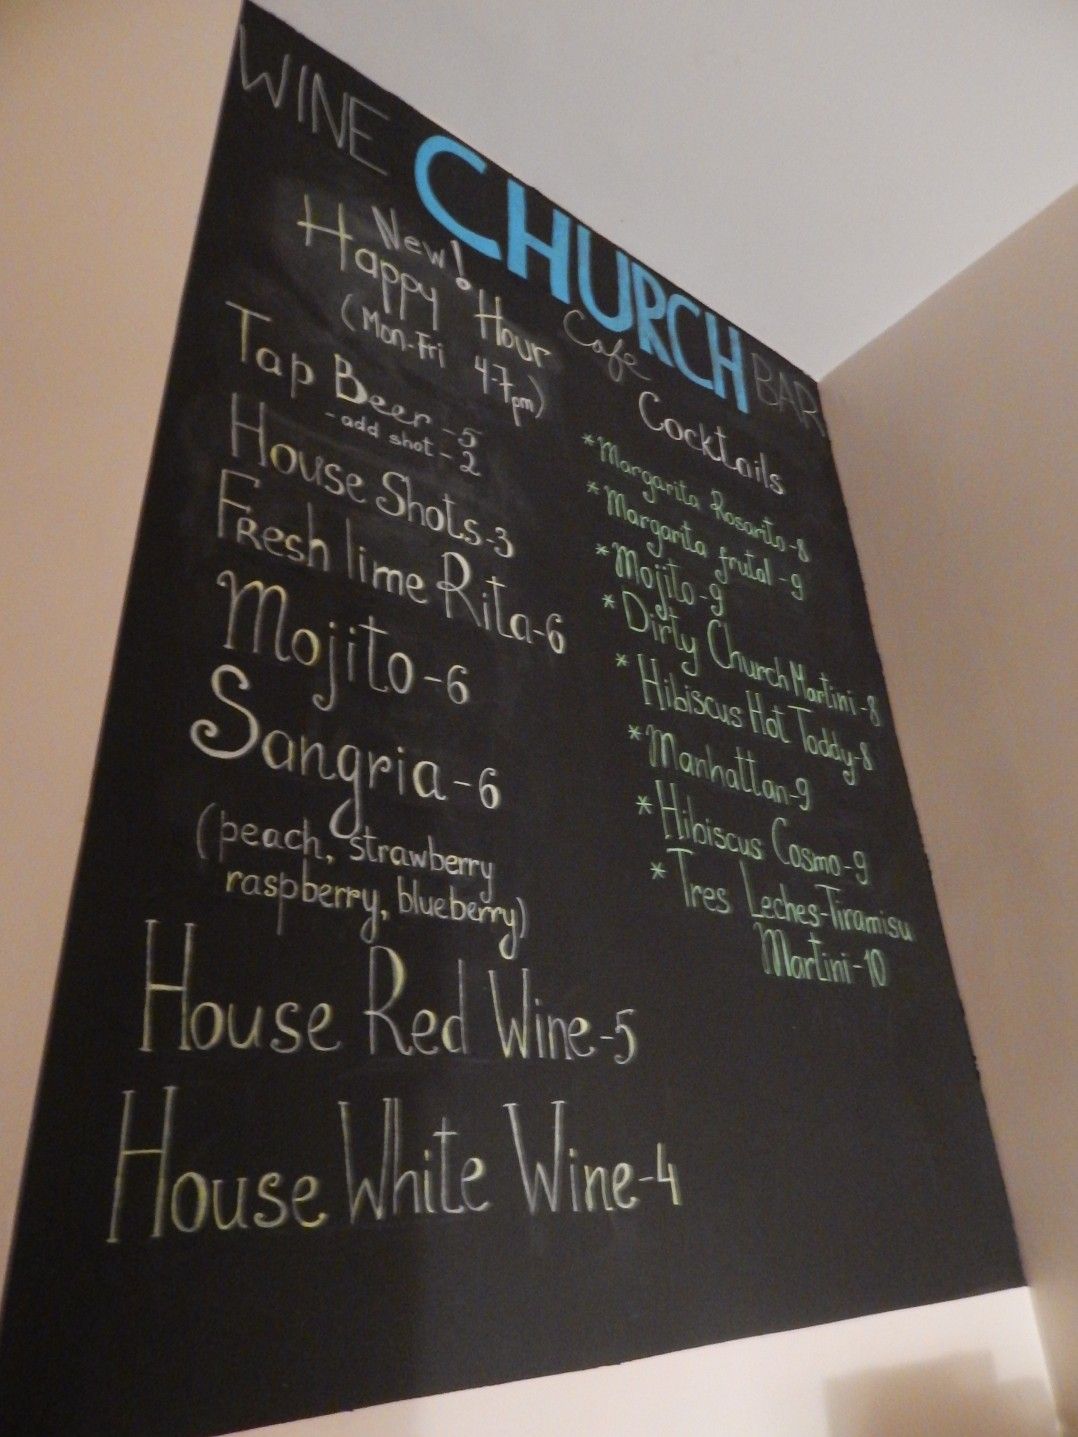 WINE CHURCH BAR
Cafe
New!
Happy Hour
(Mon-Fri 4-7pm)
Tap Beer - 5
- add shot - 2
House Shots - 3
Fresh lime Rita - 6
Mojito - 6
Sangria - 6
(peach, strawberry
raspberry, blueberry)
House Red Wine - 5
House White Wine - 4
Cocktails
*Margarita Rosarito - 8
*Margarita frutal - 9
*Mojito - 9
*Dirty Church Martini - 8
*Hibiscus Hot Toddy - 8
*Manhattan - 9
*Hibiscus Cosmo - 9
*Tres Leches-Tiramisu
Martini - 10